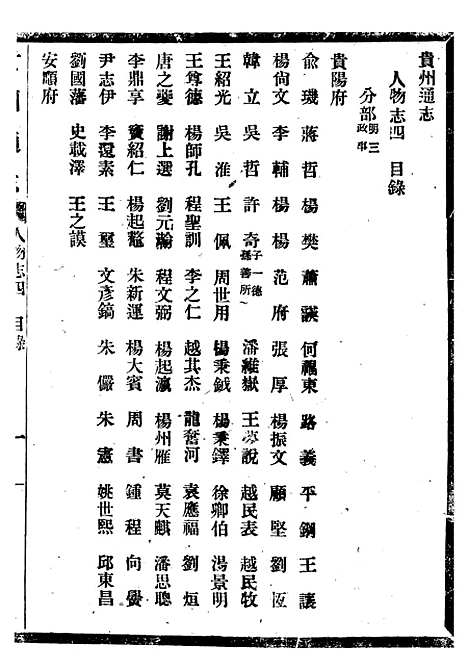 貴州通志
人物志四 目錄
分部明三政事
貴陽府
俞璣 蔣哲 楊樊 蕭譓 何福東 路義 平鋼 王讓
楊尙文 李輔 楊楊 范府 張厚 楊振文 顧堅 劉恆
韓立 吳哲 許奇子一德孫善所 潘維嶽 王夢說 越民表 越民牧
王紹光 吳淮 王佩 周世用 楊秉鉞 楊秉鐸 徐卿伯 湯景明
王尊德 楊師孔 程聖訓 李之仁 越其杰 龍奮河 袁應福 劉烜
唐之夔 謝上選 劉元瀚 程文弼 楊起瀛 楊州雁 莫天麒 潘思聰
李鼎享 竇紹仁 楊起鼇 朱新運 楊大賓 周書 鍾程 向嚳
尹志伊 李還素 王璽 文彥鎬 朱儼 朱憲 姚世熙 邱東昌
劉國藩 史載澤 王之謨
安順府
人物志四 目錄
一